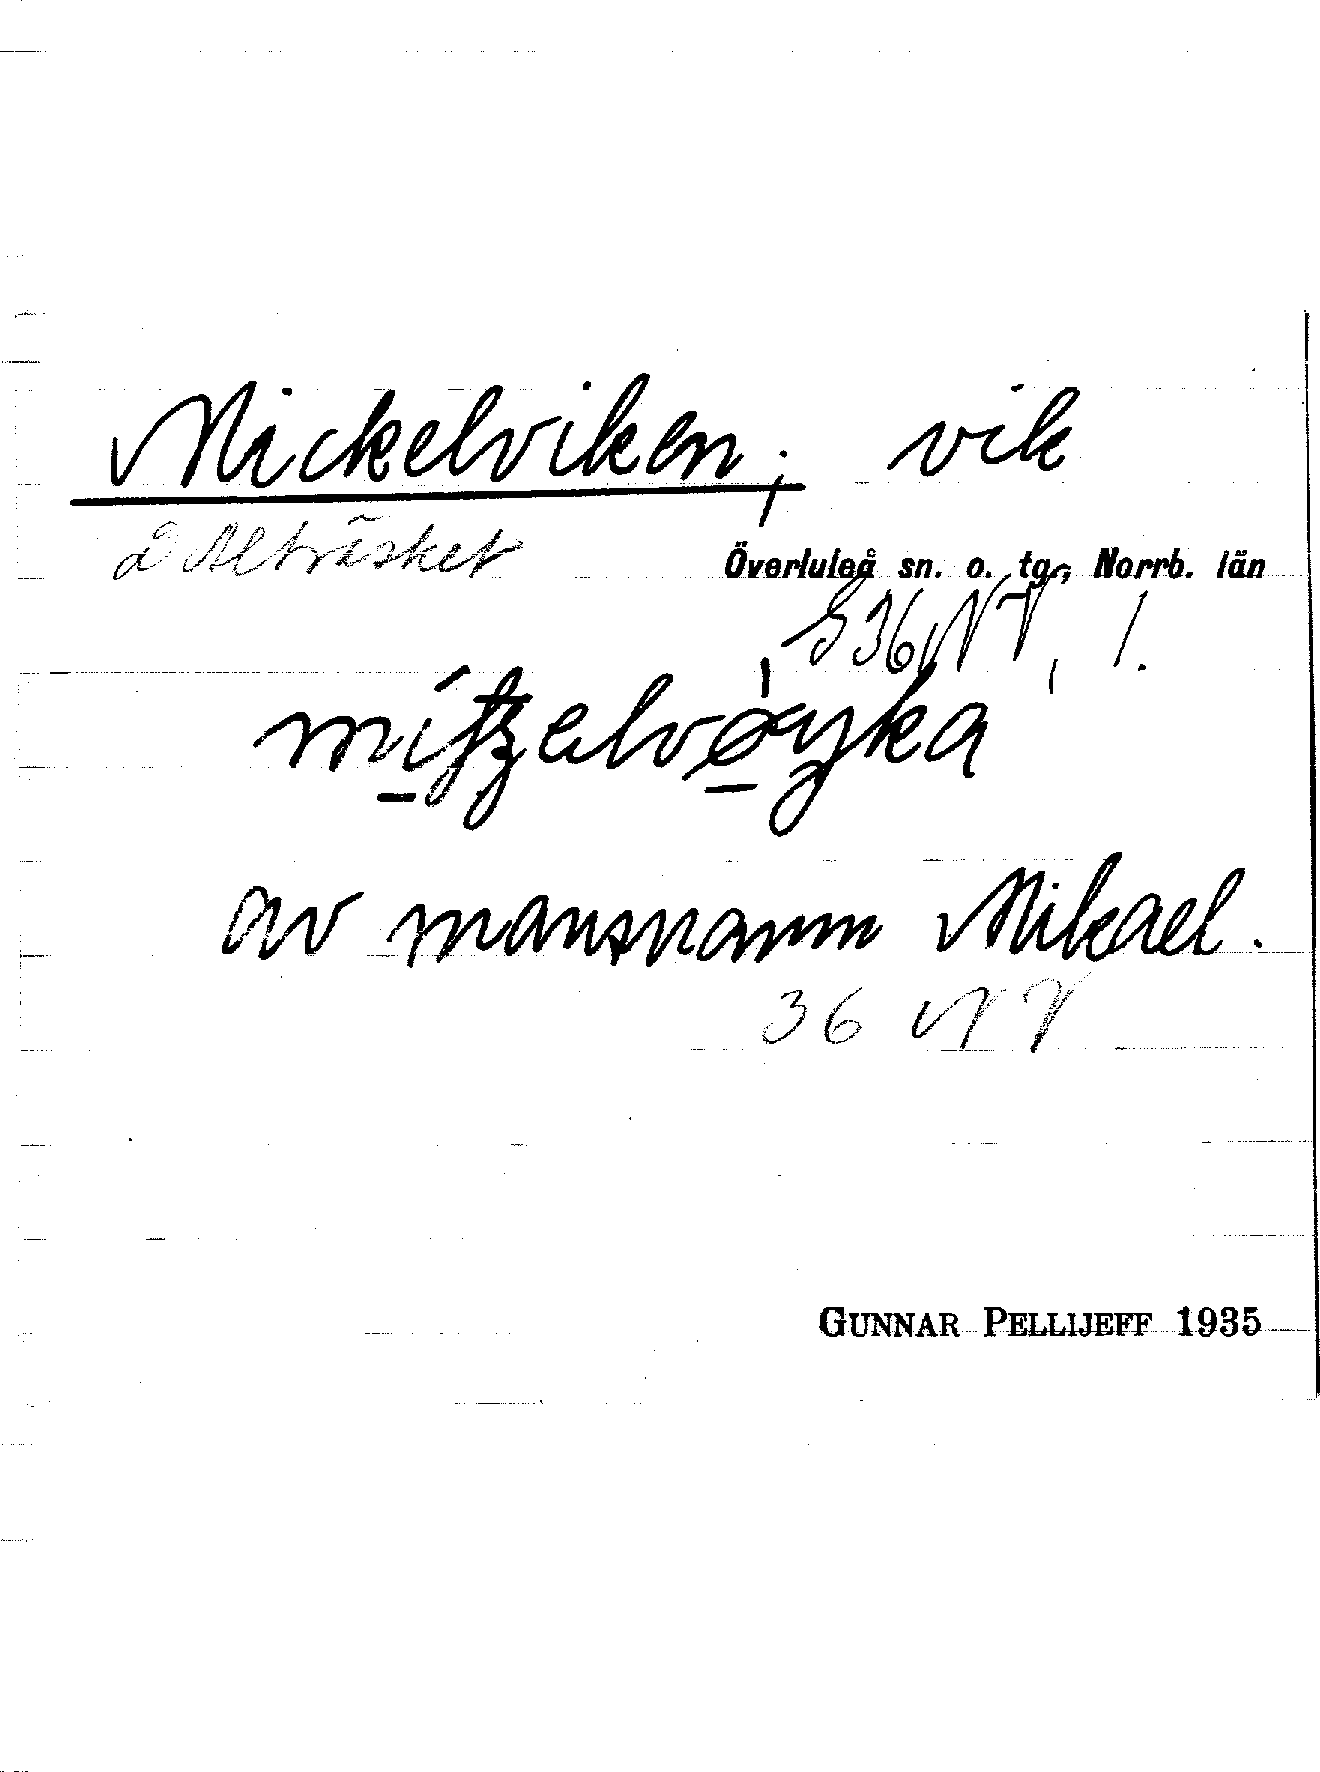 Mickelviken, vik
å Alträsket
Överluleå sn. o. tg, Norrb. län
S 36 NV, 1.
av mansnamn Mikael.
36 NV
GUNNAR PELLIJEFF 1935